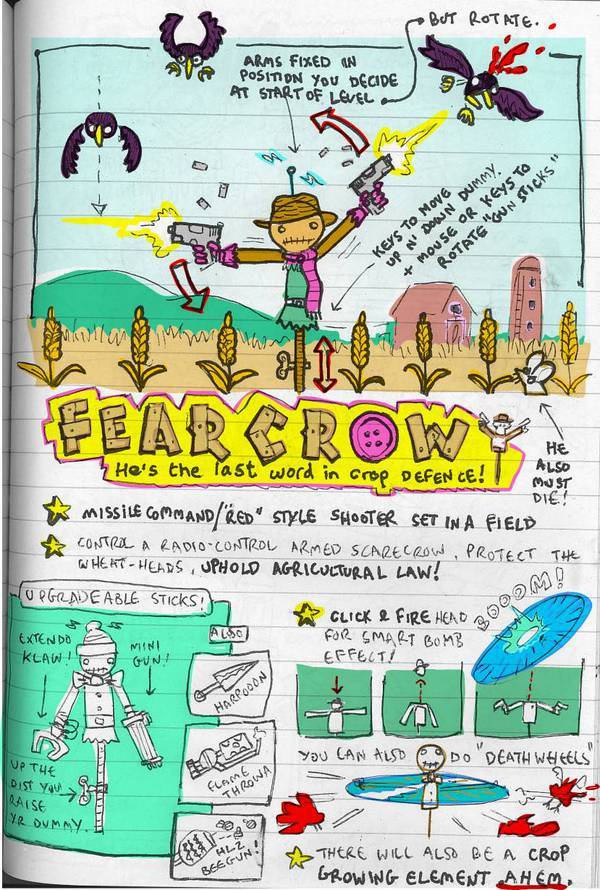 BUT ROTATE.
ARMS FIXED IN
POSITION YOU DECIDE
AT START OF LEVEL
KEYS TO MOVE
UP N' DOWN DUMMY.
+ MOUSE OR KEYS TO
ROTATE "GUN STICKS"
FEAR CROW
He's the last word in crop DEFENCE!
HE
ALSO
MUST
DIE!
MISSILE COMMAND/"RED" STYLE SHOOTER SET IN A FIELD
CONTROL A RADIO-CONTROL ARMED SCARECROW, PROTECT THE
WHEAT-HEADS, UPHOLD AGRICULTURAL LAW!
UPGRADEABLE STICKS!
EXTENDO
KLAW!
MINI
GUN!
UP THE
DIST YOU
RAISE
YR DUMMY.
ALSO
HARPOOON
FLAME
THROWA
HL2
BEEGUN!
CLICK & FIRE HEAD
FOR SMART BOMB
EFFECT!
BOOOM!
YOU CAN ALSO DO "DEATHWHEELS"
THERE WILL ALSO BE A CROP
GROWING ELEMENT. AHEM.